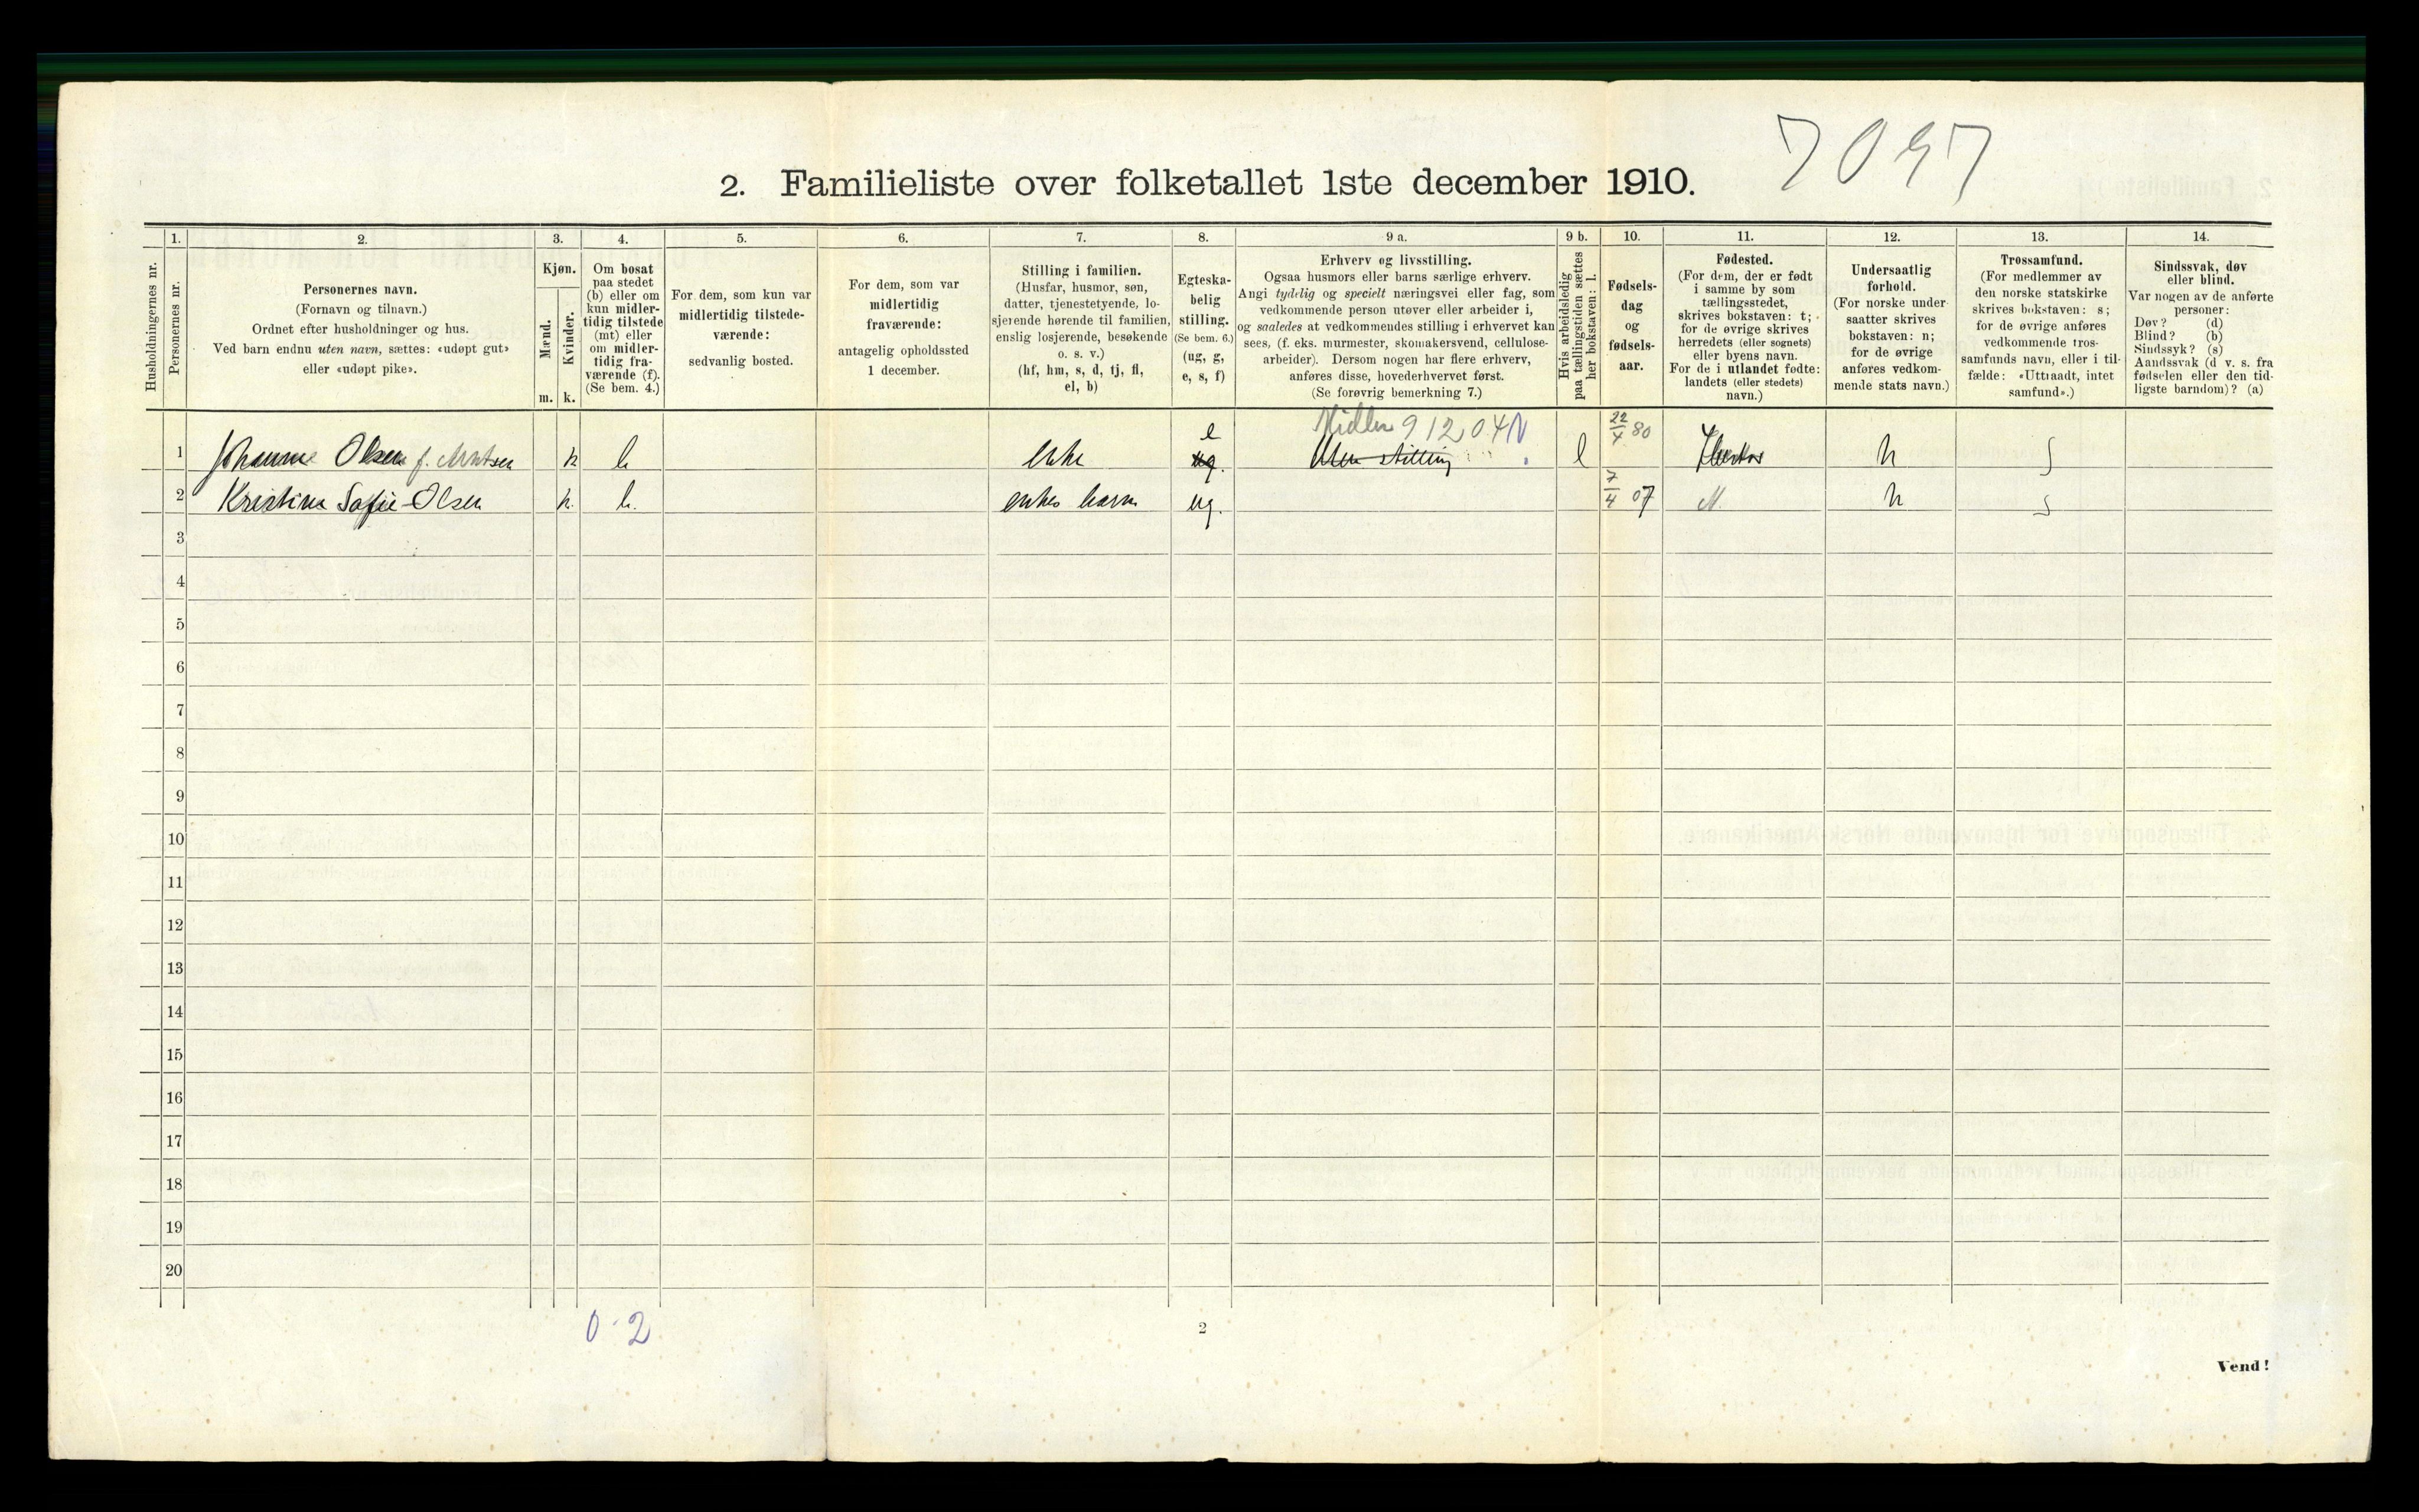 7097
2. Familieliste over folketallet 1ste december 1910.
1. 2. 3. 4. 5. 6. 7. 8. 9 a. 9 b. 10. 11. 12. 13. 14.
Husholdningernes nr.
Personernes nr.
Personernes navn.
(Fornavn og tilnavn.)
Ordnet efter husholdninger og hus.
Ved barn endnu uten navn, sættes: «udøpt gut»
eller «udøpt pike».
Kjøn.
Mænd.
Kvinder.
m. k.
Om bosat
paa stedet
(b) eller om
kun midler-
tidig tilstede
(mt) eller
om midler-
tidig fra-
værende (f).
(Se bem. 4.)
For dem, som kun var
midlertidig tilstede-
værende:
sedvanlig bosted.
For dem, som var
midlertidig
fraværende:
antagelig opholdssted
1 december.
Stilling i familien.
(Husfar, husmor, søn,
datter, tjenestetyende, lo-
sjerende hørende til familien,
enslig losjerende, besøkende
o. s. v.)
(hf, hm, s, d, tj, fl,
el, b)
Egteska-
belig
stilling.
(Se bem. 6.)
(ug, g,
e, s, f)
Erhverv og livsstilling.
Ogsaa husmors eller barns særlige erhverv.
Angi tydelig og specielt næringsvei eller fag, som
vedkommende person utøver eller arbeider i,
og saaledes at vedkommendes stilling i erhvervet kan
sees, (f. eks. murmester, skomakersvend, cellulose-
arbeider). Dersom nogen har flere erhverv,
anføres disse, hovederhvervet først.
(Se forøvrig bemerkning 7.)
Hvis arbeidsledig
paa tællingstiden sættes
her bokstaven: l.
Fødsels-
dag
og
fødsels-
aar.
Fødested.
(For dem, der er født
i samme by som
tællingsstedet,
skrives bokstaven: t;
for de øvrige skrives
herredets (eller sognets)
eller byens navn.
For de i utlandet fødte:
landets (eller stedets)
navn.)
Undersaatlig
forhold.
(For norske under-
saatter skrives
bokstaven: n;
for de øvrige
anføres vedkom-
mende stats navn.)
Trossamfund.
(For medlemmer av
den norske statskirke
skrives bokstaven: s;
for de øvrige anføres
vedkommende tros-
samfunds navn, eller i til-
fælde: «Uttraadt, intet
samfund».)
Sindssvak, døv
eller blind.
Var nogen av de anførte
personer:
Døv? (d)
Blind? (b)
Sindssyk? (s)
Aandssvak (d. v. s. fra
fødselen eller den tid-
ligste barndom)? (a)
e Midler 9 12 04 N 22/4 80
1 Johanne Olsen f. k b Enke ug. Uten stilling l n s
2 Kristine Sofie Olsen k. b. enkes barn ug. 7/4 07 n s
3
4
5
6
7
8
9
10
11
12
13
14
15
16
17
18
19
20
0-2
2
Vend!